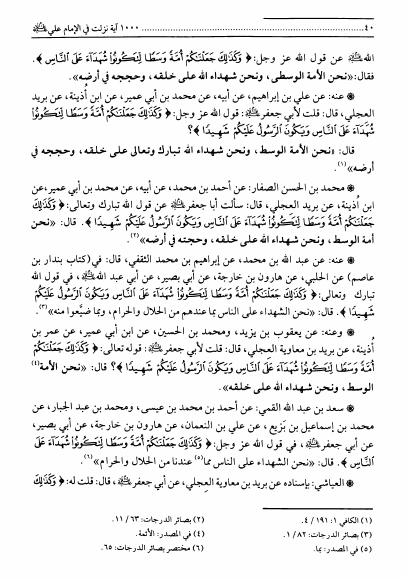 ٤٠ .......... ١٠٠٠ آية نزلت في الإمام علي ﷷ
الله ﷷ عن قول الله عز وجل: ﴿ وَكَذَٰلِكَ جَعَلْنَٰكُمْ أُمَّةً وَسَطًا لِتَكُونُوا شُهَدَآءَ عَلَى النَّاسِ ﴾.
فقال: «نحن الأمة الوسطى، ونحن شهداء الله على خلقه، وحججه في أرضه».
❋ عنه: عن علي بن إبراهيم، عن أبيه، عن محمد بن أبي عمير، عن ابن أُذينة، عن بريد
العجلي، قال: قلت لأبي جعفر ﷷ: قول الله عز وجل: ﴿ وَكَذَٰلِكَ جَعَلْنَٰكُمْ أُمَّةً وَسَطًا لِتَكُونُوا
شُهَدَآءَ عَلَى النَّاسِ وَيَكُونَ الرَّسُولُ عَلَيْكُمْ شَهِيدًا ﴾؟
قال: «نحن الأمة الوسط، ونحن شهداء الله تبارك وتعالى على خلقه، وحججه في
أرضه»(١).
❋ محمد بن الحسن الصفار: عن أحمد بن محمد، عن أبيه، عن محمد بن أبي عمير، عن
ابن أُذينة، عن بريد العجلي، قال: سألت أبا جعفر ﷷ عن قول الله تبارك وتعالى: ﴿ وَكَذَٰلِكَ
جَعَلْنَٰكُمْ أُمَّةً وَسَطًا لِتَكُونُوا شُهَدَآءَ عَلَى النَّاسِ وَيَكُونَ الرَّسُولُ عَلَيْكُمْ شَهِيدًا ﴾. قال: «نحن
أمة الوسط، ونحن شهداء الله على خلقه، وحجته في أرضه»(٢).
❋ عنه: عن عبد الله بن محمد، عن إبراهيم بن محمد الثقفي، قال: في (كتاب بندار بن
عاصم) عن الحلبي، عن هارون بن خارجة، عن أبي بصير، عن أبي عبد الله ﷷ، في قول الله
تبارك وتعالى: ﴿ وَكَذَٰلِكَ جَعَلْنَٰكُمْ أُمَّةً وَسَطًا لِتَكُونُوا شُهَدَآءَ عَلَى النَّاسِ وَيَكُونَ الرَّسُولُ عَلَيْكُمْ
شَهِيدًا ﴾. قال: «نحن الشهداء على الناس بما عندهم من الحلال والحرام، وبما ضيَّعوا منه»(٣).
❋ وعنه: عن يعقوب بن يزيد، ومحمد بن الحسين، عن ابن أبي عمير، عن عمر بن
أُذينة، عن بريد بن معاوية العجلي، قال: قلت لأبي جعفر ﷷ: قوله تعالى: ﴿ وَكَذَٰلِكَ جَعَلْنَٰكُمْ
أُمَّةً وَسَطًا لِتَكُونُوا شُهَدَآءَ عَلَى النَّاسِ وَيَكُونَ الرَّسُولُ عَلَيْكُمْ شَهِيدًا ﴾؟ قال: «نحن الأمة(٤)
الوسط، ونحن شهداء الله على خلقه».
❋ سعد بن عبد الله القمي: عن أحمد بن محمد بن عيسى، ومحمد بن عبد الجبار، عن
محمد بن إسماعيل بن بَزيع، عن علي بن النعمان، عن هارون بن خارجة، عن أبي بصير،
عن أبي جعفر ﷷ، في قول الله عز وجل: ﴿ وَكَذَٰلِكَ جَعَلْنَٰكُمْ أُمَّةً وَسَطًا لِتَكُونُوا شُهَدَآءَ عَلَى
النَّاسِ ﴾. قال: «نحن الشهداء على الناس مما(٥) عندنا من الحلال والحرام»(٦).
❋ العياشي: بإسناده عن بريد بن معاوية العِجلي، عن أبي جعفر ﷷ، قال: قلت له: ﴿ وَكَذَٰلِكَ
(١) الكافي ١: ١٩١ / ٤.
(٢) بصائر الدرجات: ٦٣ / ١١.
(٣) بصائر الدرجات: ٨٢ / ١.
(٤) في المصدر: الأئمة.
(٥) في المصدر: بما.
(٦) مختصر بصائر الدرجات: ٦٥.